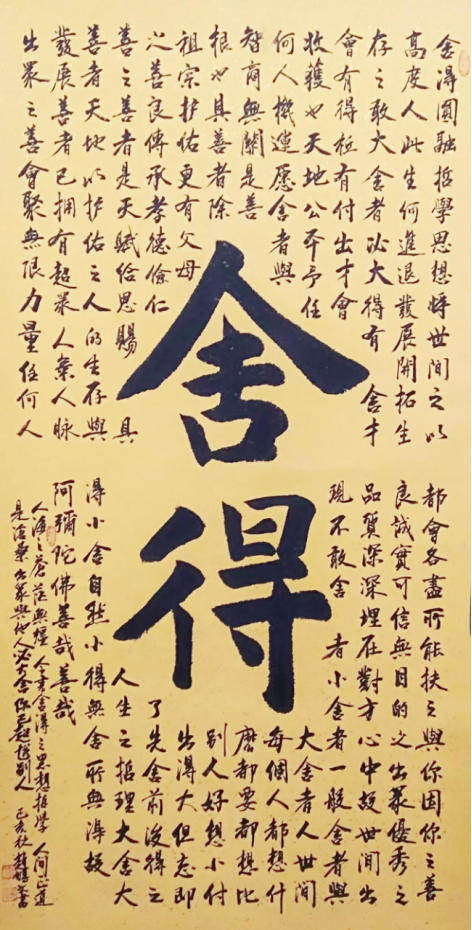 舍得圓融哲學思想悟世間之以
高度人此生何進退發展開拓生
存之敢大舍者必大得有 舍才
會有得極有付出才會
收獲也天地公平予任
何人機運愿舍者與
智商無關是善
根也具善者除
祖宗护佑更有父母
之善良傳承孝德儉仁
善之善者是天賦給思賜 具
善者天地以护佑之人的生存與
發展善者已拥有超眾人氣人脉
出眾之善會聚無限力量任何人
舍得
都會各盡所能扶之與你因你之善
良誠實可信無目的之出眾優秀之
品質深深埋在對方心中故世間出
現不敢舍 者小舍者一般舍者與
大舍者人世間
每個人都想什
麼都要都想比
别人好想小付
出得大但忘即
了先舍前後得之
人生之哲理大舍大
得小舍自然小得無舍所無得故
阿彌陀佛善哉善哉
人海之蒼茫無 人書舍得之思想哲學 人间正道
是沧桑 與他人必有舍你已超越别人 己亥秋 書